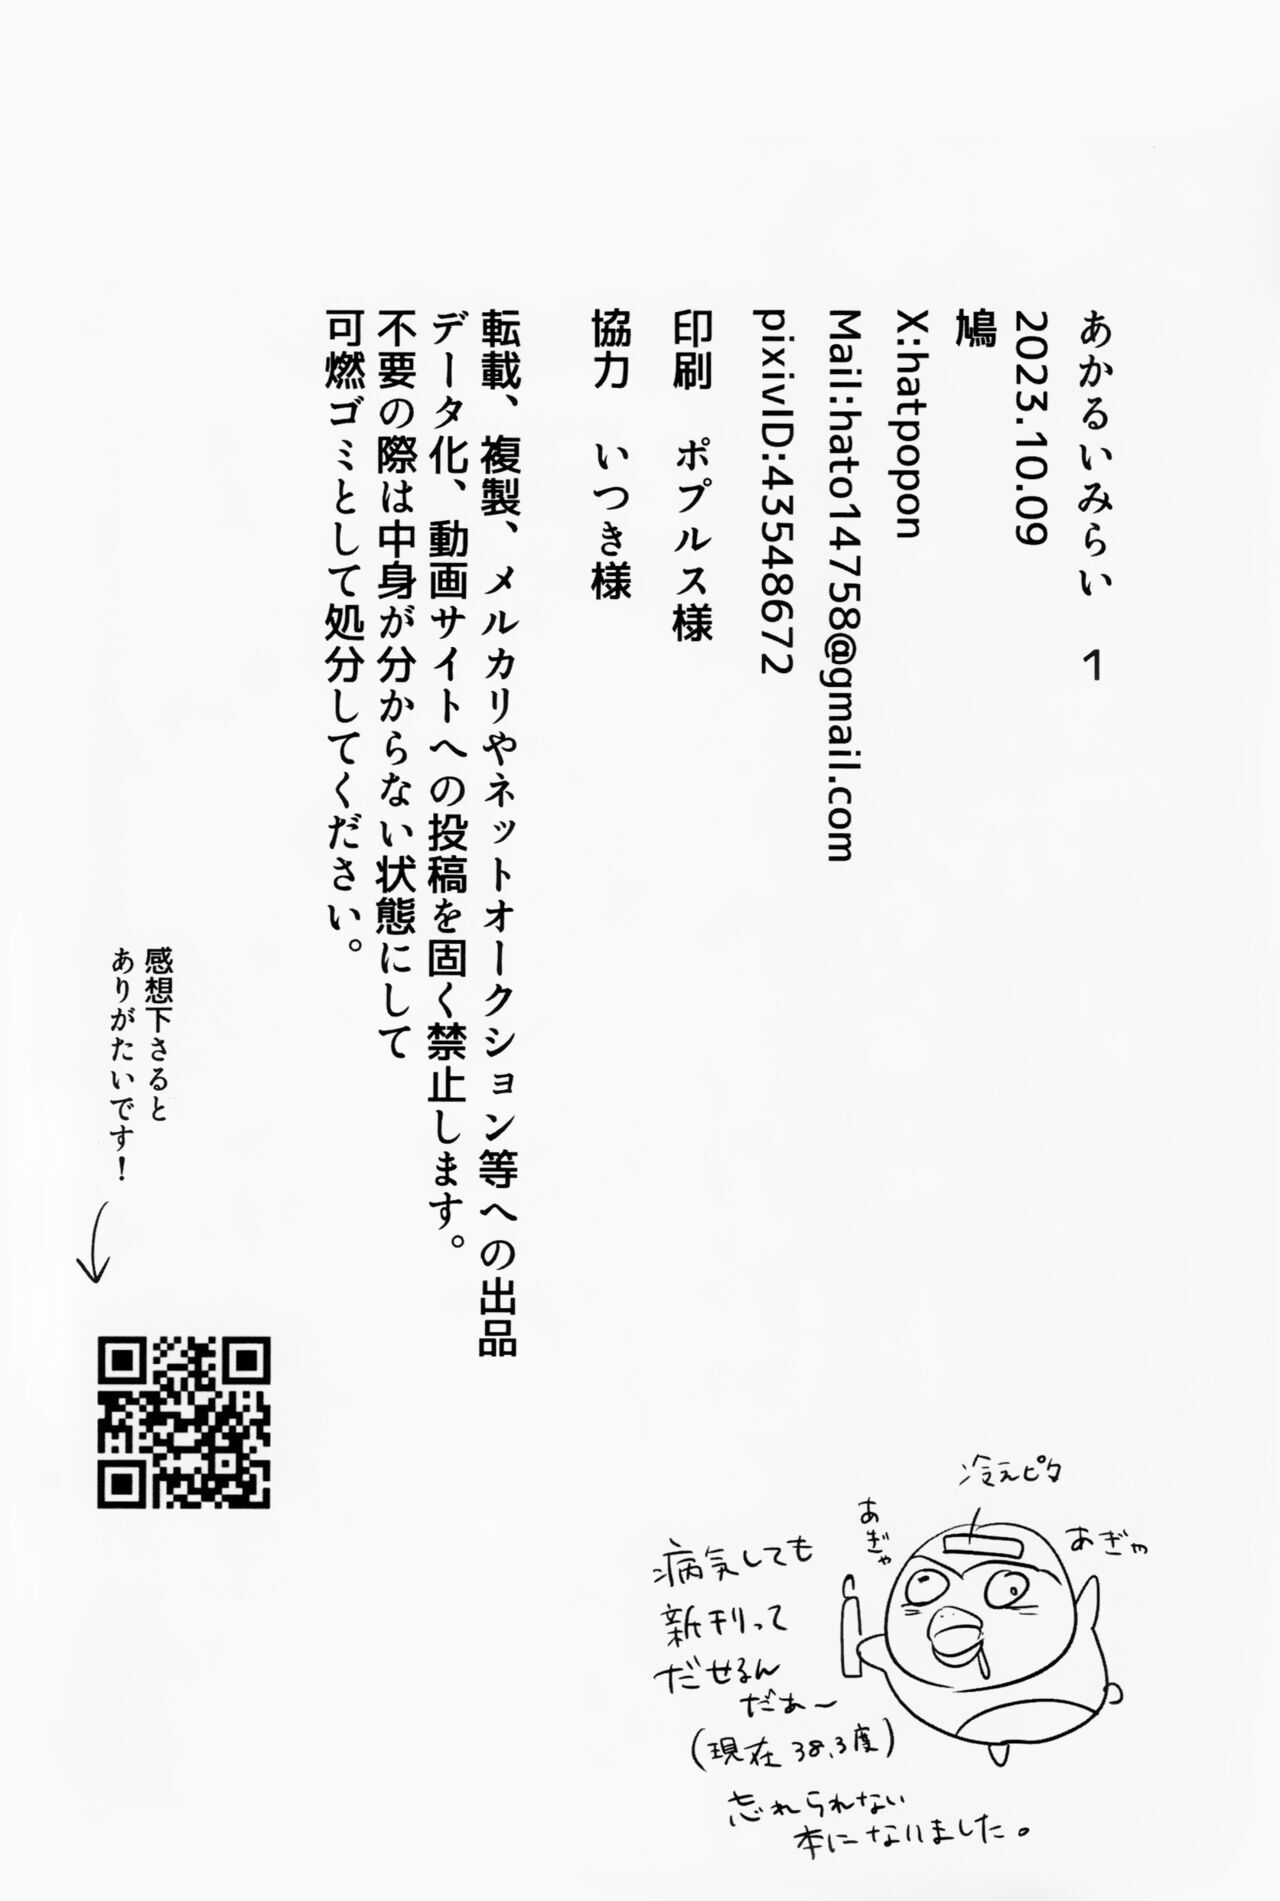 あかるいみらい　1
2023.10.09
鳩
X:hatpopon
Mail:hato14758@gmail.com
pixivID:43548672
印刷　ポプルス様
協力　いつき様
転載、複製、メルカリやネットオークション等への出品
データ化、動画サイトへの投稿を固く禁止します。
不要の際は中身が分からない状態にして
可燃ゴミとして処分してください。
感想下さると
ありがたいです！
冷えピタ
あぎゃ
あぎゃ
病気しても
新刊って
だせるん
だあ〜
(現在 38.3度)
忘れられない
本になりました。